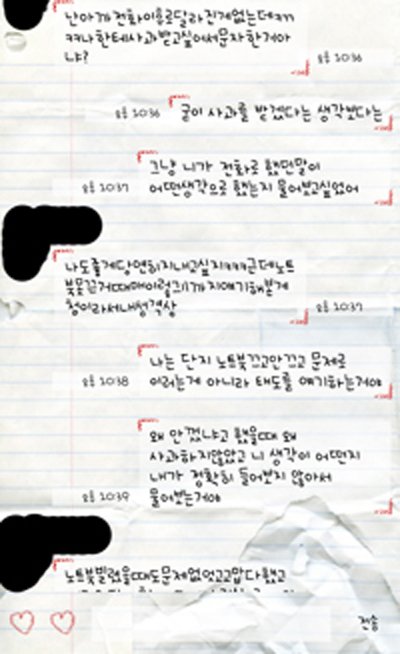 난아까전화이후로달라진게없는데ㅋㅋ
ㅋㅋ나한테사과받고싶어서문자한거야
냐?
오후 20:36
오후 20:36
굳이 사과를 받겠다는 생각보다는
그냥 니가 전화로 했던말이
어떤생각으로 했는지 물어보고싶었어
오후 20:37
나도좋게당연히지내고싶지ㅋㅋㅋ근데노트
북못끈거때매이렇게까지얘기해본게
첨이라서내성격상
오후 20:37
나는 단지 노트북끄고안끄고 문제로
이러는게 아니라 태도를 얘기하는거야
오후 20:38
왜 안껐냐고 했을때 왜
사과하지않았고 니 생각이 어떤지
내가 정확히 들어보지 않아서
물어보는거야
오후 20:39
노트북빌렸을때도문제없었고고맙다했고
전송